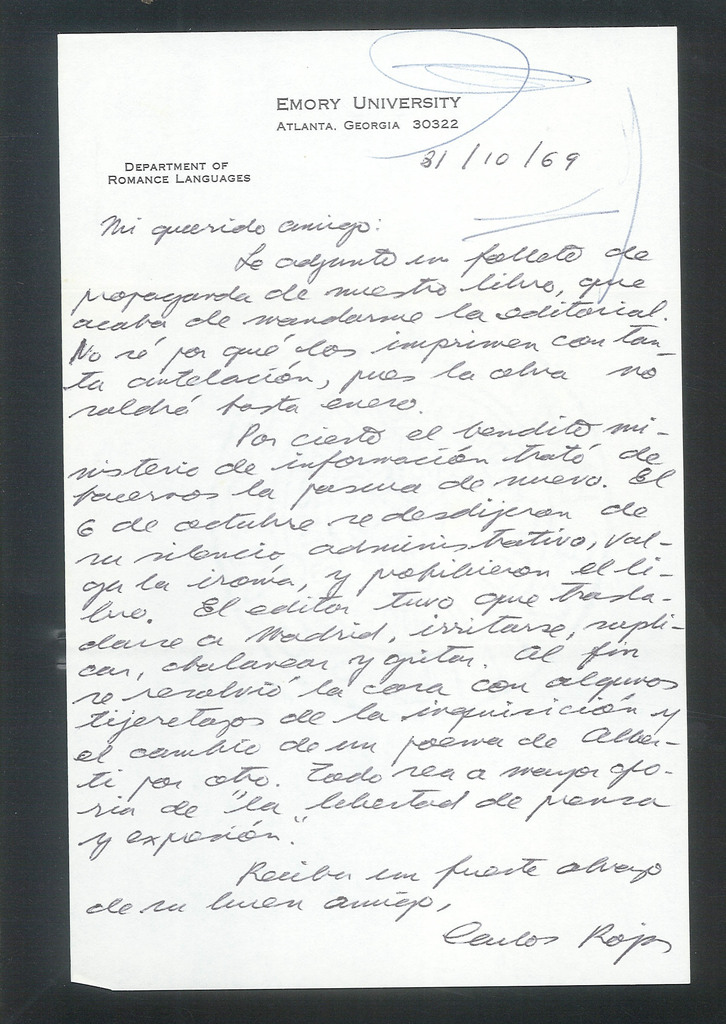 EMORY UNIVERSITY
ATLANTA, GEORGIA 30322
31/10/69
DEPARTMENT OF
ROMANCE LANGUAGES
Mi querido amigo:
Le adjunto un folleto de
propaganda de nuestro libro, que
acaba de mandarme la editorial.
No sé por qué los imprimen con tan-
ta antelación, pues la obra no
saldrá hasta enero.
Por cierto el bendito mi-
nisterio de información trató de
hacernos la pascua de nuevo. El
6 de octubre se desdijeron de
su silencio administrativo, val-
ga la ironía, y prohibieron el li-
bro. El editor tuvo que trasla-
darse a Madrid, irritarse, supli-
car, chalanear y gritar. Al fin
se resolvió la cosa con algunos
tijeretazos de la inquisición y
el cambio de un poema de Alber-
ti por otro. Todo sea a mayor glo-
ria de "la libertad de prensa
y expresión."
Reciba un fuerte abrazo
de su buen amigo,
Carlos Rojas